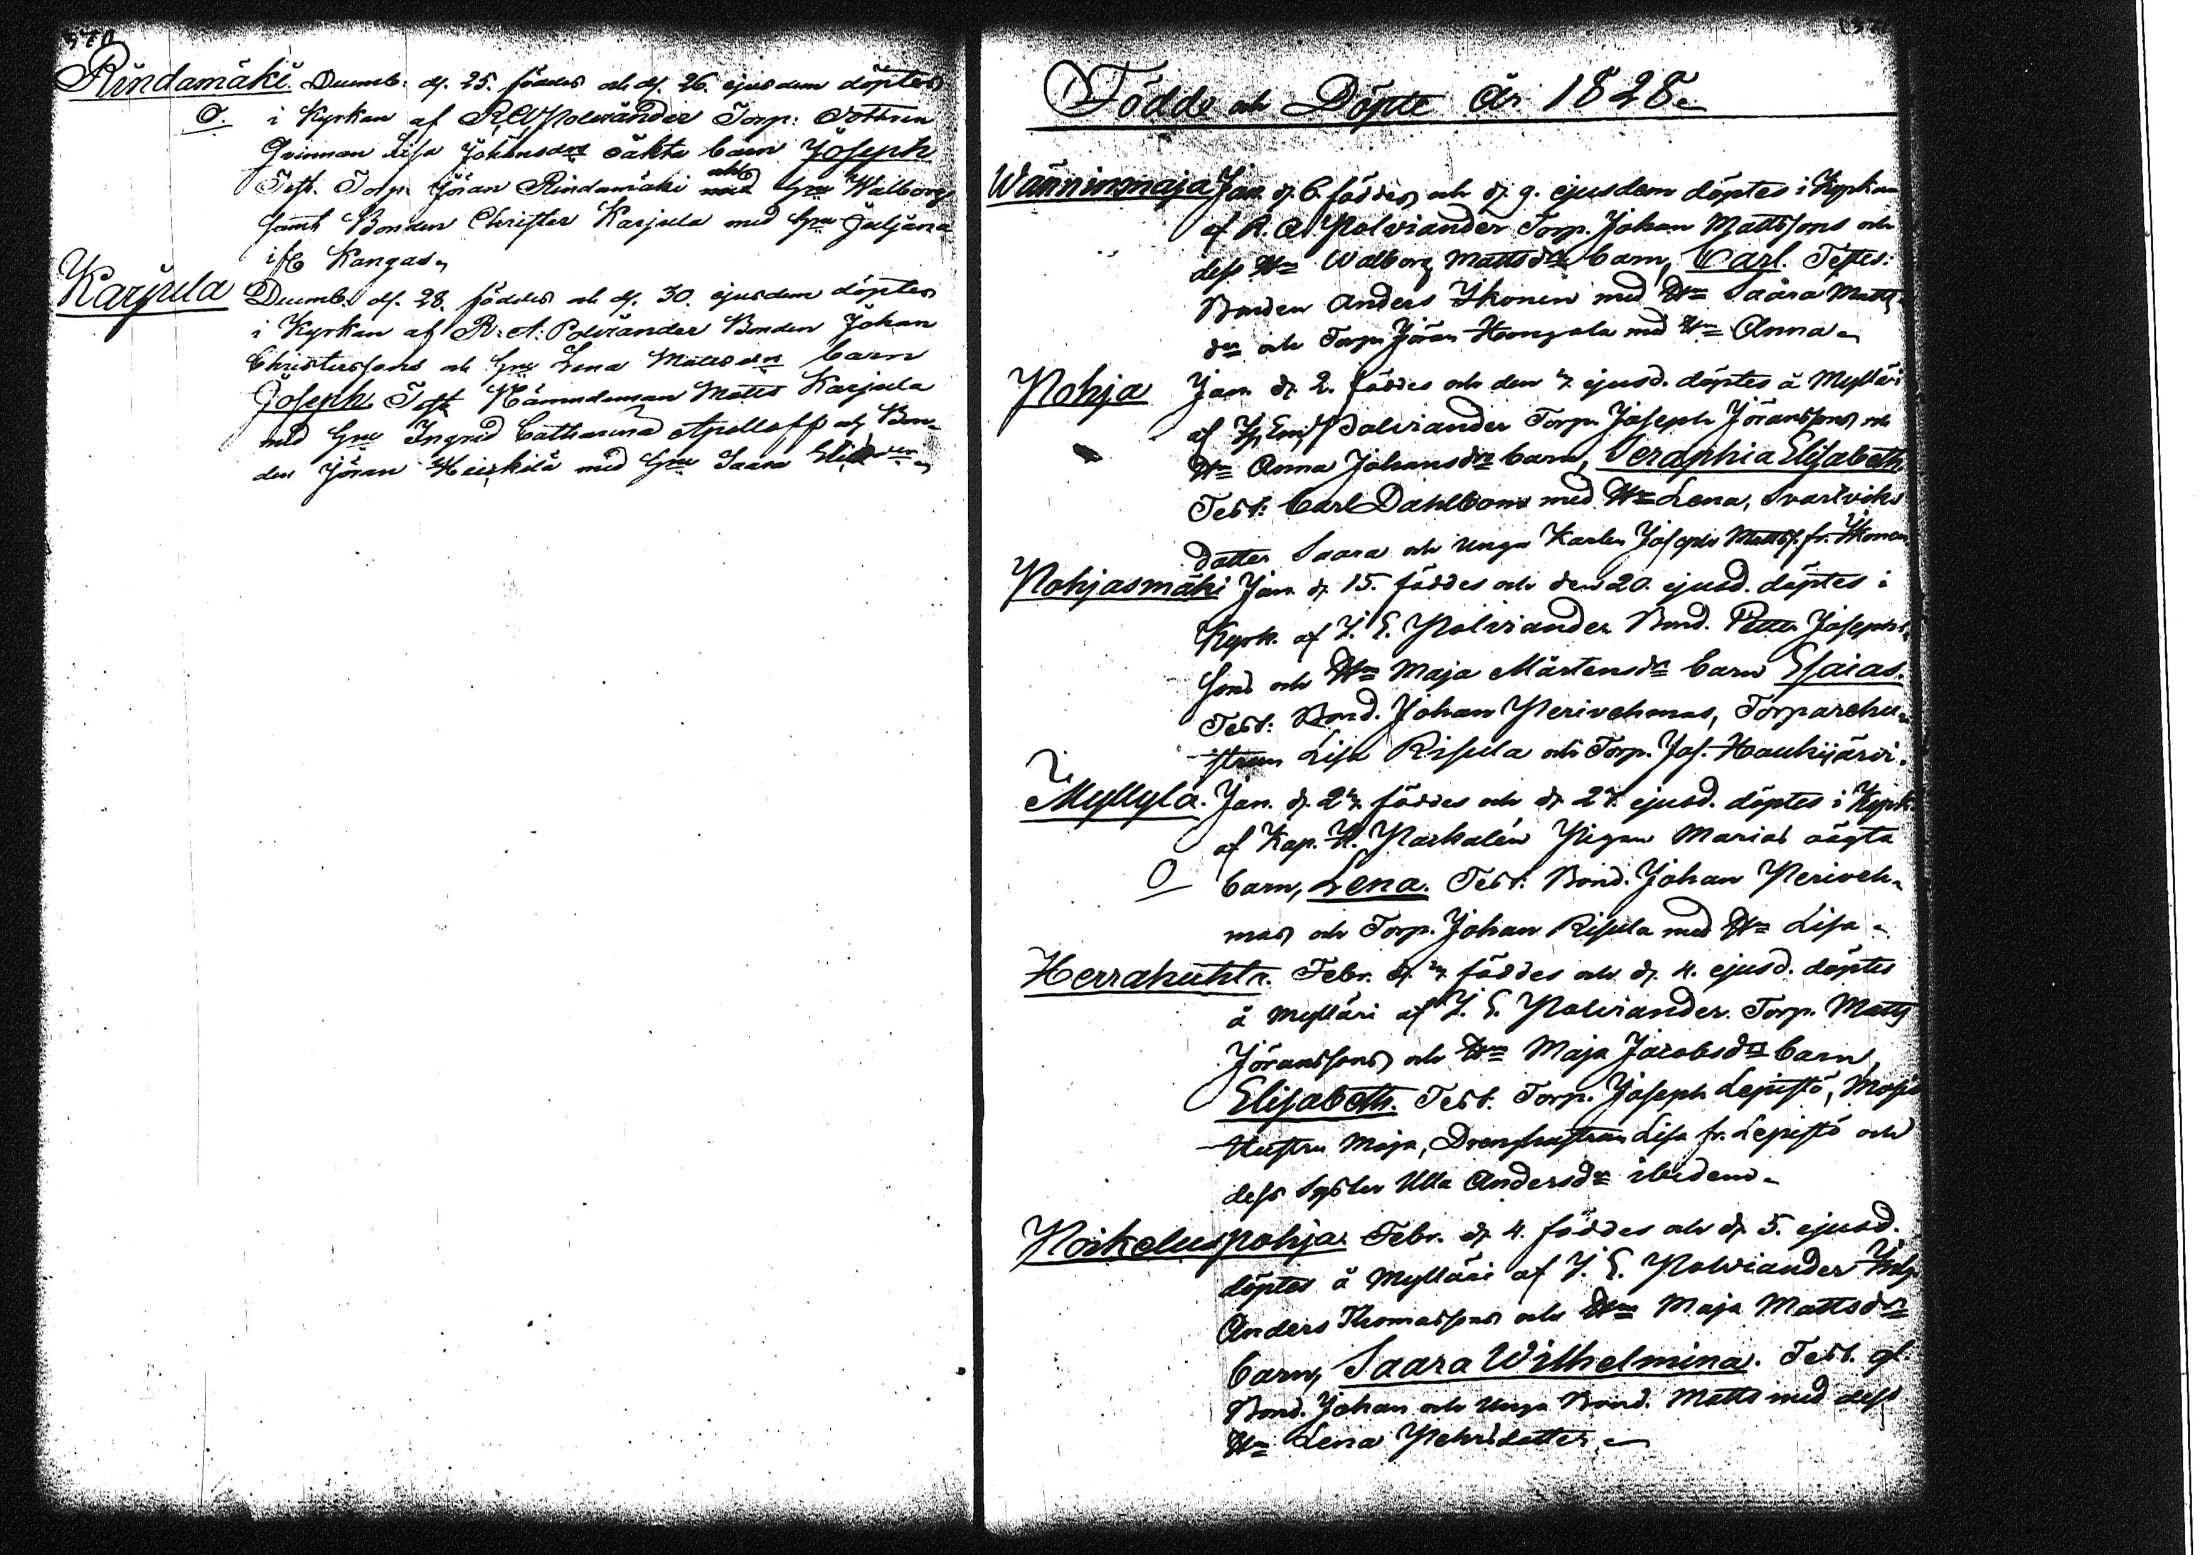 370
Rindamäki. Decemb. d. 25. föddes och d. 26. ejusdem döptes
O. i Kyrkan af R. A. Polviander Torp: Dottren
Qvinnan Lisa Johansdr oäkta barn Joseph
Test. Torp. Jöran Rindamäki och Hru Walborg
samt Bonden Christer Karjula med Hru Juljana
ifr Kangas
Karjula Decemb. d. 28. föddes och d. 30. ejusdem döptes
i Kyrkan af R. A. Polviander Bonden Johan
Christerssons och Hru Lena Mattsdr barn
Joseph. Test. Nämndeman Matts Karjula
med Hru Ingrid Catharina Apolloff och Bon-
den Jöran Heickilä med Hru Saara
Födde och Döpte År 1828.
Wänninmaja Jan. d. 6. föddes och d. 9. ejusdem döptes i Kyrkan
af R. A. Polviander Torp. Johan Mattssons och
dess Hu Walborg Mattsdr barn, Carl. Testes:
Bonden Anders Ikonen med Hu Saara Matts
dr och Torp. Jöran Hongola med Hu Anna
Pohja Jan. d. 2. föddes och den 7. ejusd. döptes å Mylläri
af Polviander Torp. Joseph Jöranssons och
Hu Anna Johansdr barn, Seraphia Elisabeth
Test: Carl Dahlbom med Hu Lena, Svartviks
dotter Saara och unga Karlen Joseph Mattss. fr. Ikonen
Pohjasmäki Jan. d. 15. föddes och den 20. ejusd. döptes i
Kyrk. af J. E. Polviander Bond. Petter Josephs-
sons och Hu Maja Mårtensdr barn Esaias.
Test: Bond. Johan Perivehmas, Torparehu-
strun Lisa Risula och Torp. Jos. Haukijärvi.
Myllylä. Jan. d. 27. föddes och d. 27. ejusd. döptes i Kyrk.
af Kap. K. Parkalén Pigan Marias oägta
O barn, Lena. Test: Bond. Johan Periveh-
mas och Torp. Johan Risula med Hu Lisa
Herrakuhta. Febr. d. föddes och d. 4. ejusd. döptes
å Mylläri af J. E. Polviander. Torp. Matts
Jöranssons och Hu Maja Jacobsdr barn,
Elisabeth. Test. Torp. Joseph Lepistö,
Hustru Maja, Drenghustrun Lisa fr. Lepistö och
dess Syster Ulla Andersdr ibidem
Poikeluspohja. Febr. d. 4. föddes och d. 5. ejusd.
döptes å Mylläri af J. E. Polviander
Anders Thomassons och Hu Maja Mattsdr
barn, Saara Wilhelmina. Test. gl.
Bond. Johan och unga Bond. Matts med dess
Hu Lena Pehrsdotter